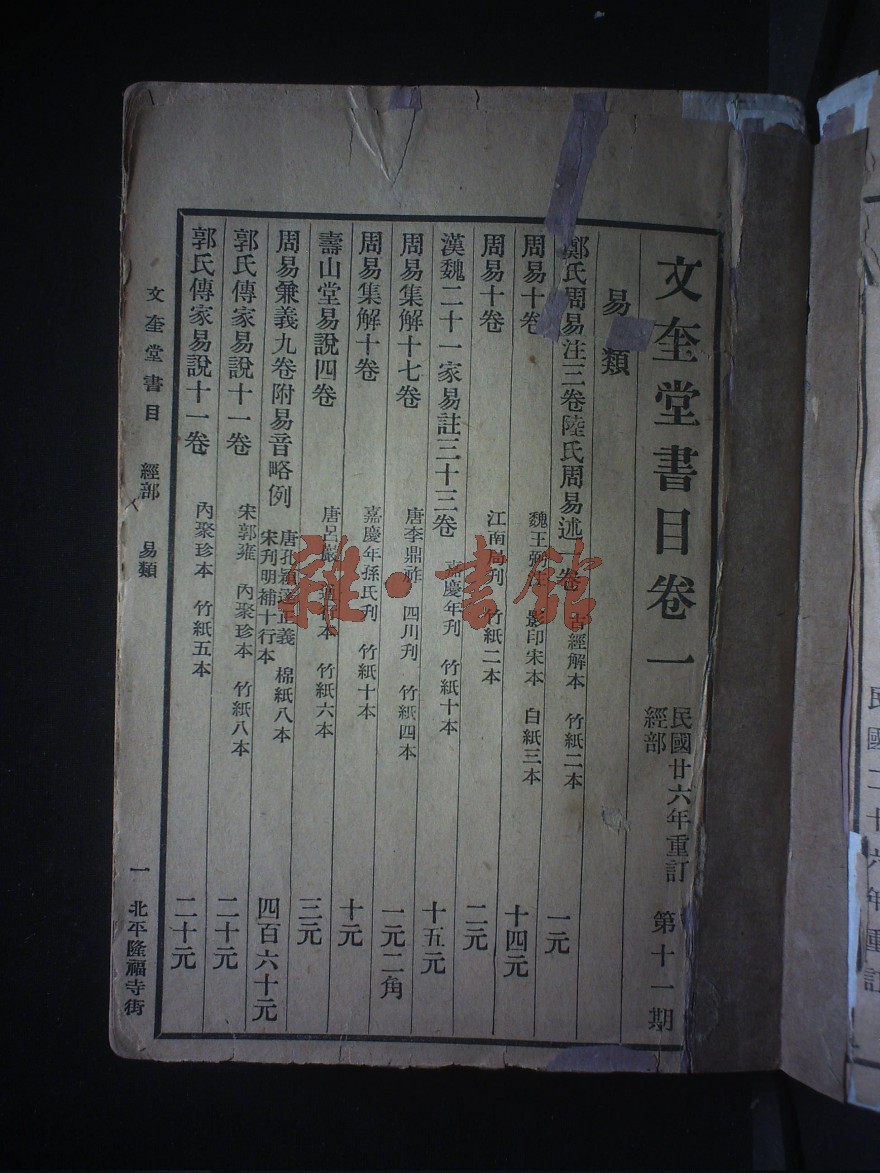 文奎堂書目卷一 民國廿六年重訂 第十一期
經部
易類
鄭氏周易注三卷陸氏周易述一卷 古經解本 竹紙二本 一元
周易十卷 魏王弼注 影印宋本 白紙三本 十四元
周易十卷 江南局刊 竹紙二本 二元
漢魏二十一家易註三十三卷 嘉慶年刊 竹紙十本 十五元
周易集解十七卷 唐李鼎祚 四川刊 竹紙四本 一元二角
周易集解十卷 嘉慶年孫氏刊 竹紙十本 十元
壽山堂易說四卷 唐呂巖 通行本 竹紙六本 三元
周易兼義九卷附易音略例 唐孔穎達正義 宋刊明補十行本 棉紙八本 四百六十元
郭氏傳家易說十一卷 宋郭雍 內聚珍本 竹紙八本 二十元
郭氏傳家易說十一卷 內聚珍本 竹紙五本 二十元
文奎堂書目 經部 易類 一 北平隆福寺街
民國二十六年重訂
雜·書館